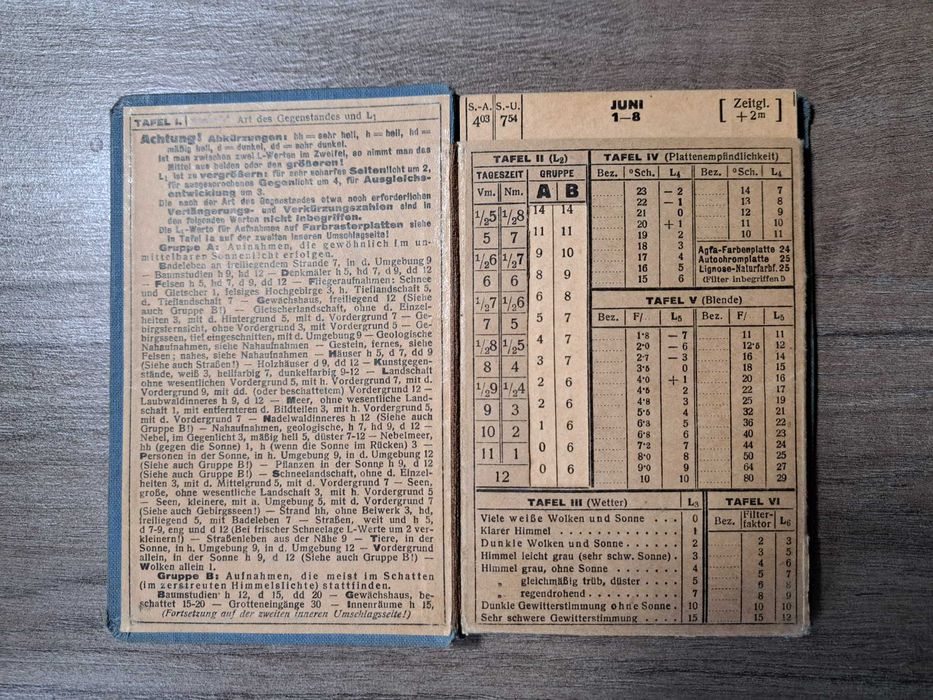 TAFEL I. Art des Gegenstandes und L1
Achtung! Abkürzungen: hh = sehr hell, h = hell, hd =
mäßig hell, d = dunkel, dd = sehr dunkel.
Ist man zwischen zwei L-Werten im Zweifel, so nimmt man das
Mittel aus beiden oder den größeren!
L1 ist zu vergrößern: für sehr scharfes Seitenlicht um 2,
für ausgesprochenes Gegenlicht um 4, für Ausgleichs-
entwicklung um 3.
Die nach der Art des Gegenstandes etwa noch erforderlichen
Verlängerungs- und Verkürzungszahlen sind in
den folgenden Werten nicht inbegriffen.
Die L1-Werte für Aufnahmen auf Farbrasterplatten siehe
in Tafel Ia auf der zweiten inneren Umschlagseite!
Gruppe A: Aufnahmen, die gewöhnlich im un-
mittelbaren Sonnenlicht erfolgen.
Badeleben an freiliegendem Strande 7, in d. Umgebung 9
— Baumstudien h 9, hd 12 — Denkmäler h 5, hd 7, d 9, dd 12
— Felsen h 5, hd 7, d 9, dd 12 — Fliegeraufnahmen: Schnee
und Gletscher 1, felsiges Hochgebirge 3, h. Tieflandschaft 5,
d. Tieflandschaft 7 — Gewächshaus, freiliegend 12 (Siehe
auch Gruppe B!) — Gletscherlandschaft, ohne d. Einzel-
heiten 3, mit d. Hintergrund 5, mit d. Vordergrund 7 — Ge-
birgsfernsicht, ohne Vordergrund 3, mit Vordergrund 5 — Ge-
birgsseen, tief eingeschnitten, mit d. Umgebung 9 — Geologische
Nahaufnahmen, siehe Nahaufnahmen — Gestein, fernes, siehe
Felsen; nahes, siehe Nahaufnahmen — Häuser h 5, d 7, dd 9
(Siehe auch Straßen!) — Holzhäuser d 9, dd 12 — Kunstgegen-
stände, weiß 3, hellfarbig 7, dunkelfarbig 9-12 — Landschaft
ohne wesentlichen Vordergrund 5, mit h. Vordergrund 7, mit d.
Vordergrund 9, mit dd. (oder beschattetem) Vordergrund 12 —
Laubwaldinneres h 9, d 12 — Meer, ohne wesentliche Land-
schaft 1, mit entfernteren d. Bildteilen 3, mit h. Vordergrund 5,
mit d. Vordergrund 7 — Nadelwaldinneres h 12 (Siehe auch
Gruppe B!) — Nahaufnahmen, geologische, h 7, hd 9, d 12 —
Nebel, im Gegenlicht 3, mäßig hell 5, düster 7-12 — Nebelmeer,
hh (gegen die Sonne) 1, h (wenn die Sonne im Rücken) 3 —
Personen in der Sonne, in h. Umgebung 9, in d. Umgebung 12
(Siehe auch Gruppe B!) — Pflanzen in der Sonne h 9, d 12
(Siehe auch Gruppe B!) — Schneelandschaft, ohne d. Einzel-
heiten 3, mit d. Mittelgrund 5, mit d. Vordergrund 7 — Seen,
große, ohne wesentliche Landschaft 3, mit h. Vordergrund 5
— Seen, kleinere, mit h. Umgebung 5, mit d. Umgebung 7
(Siehe auch Gebirgsseen!) — Strand hh, ohne Beiwerk 3, hd,
freiliegend 5, mit Badeleben 7 — Straßen, weit und h 5,
d 7-9, eng und d 12 (Bei frischer Schneelage L-Werte um 2 ver-
kleinern!) — Straßenleben aus der Nähe 9 — Tiere, in der
Sonne, in h. Umgebung 9, in d. Umgebung 12 — Vordergrund
allein, in der Sonne h 9, d 12 (Siehe auch Gruppe B!) —
Wolken allein 1.
Gruppe B: Aufnahmen, die meist im Schatten
(im zerstreuten Himmelslichte) stattfinden.
Baumstudien h 12, d 15, dd 20 — Gewächshaus, be-
schattet 15-20 — Grotteneingänge 30 — Innenräume h 15,
(Fortsetzung auf der zweiten inneren Umschlagseite!)
S.-A. S.-U. JUNI [ Zeitgl. ]
4 03 7 54 1—8 + 2m
TAFEL II (L2)
TAGESZEIT GRUPPE
Vm. Nm. A B
1/2 5 1/2 8 14 14
5 7 11 11
1/2 6 1/2 7 9 10
6 6 8 9
1/2 7 1/2 6 6 8
7 5 5 7
1/2 8 1/2 5 4 7
8 4 3 7
1/2 9 1/2 4 2 6
9 3 2 6
10 2 1 6
11 1 0 6
12 0 6
TAFEL IV (Plattenempfindlichkeit)
Bez. °Sch. L4 Bez. °Sch. L4
23 — 2 14 7
22 — 1 13 8
21 0 12 9
20 + 1 11 10
19 2 10 11
18 3
17 4
16 5
15 6
Agfa-Farbenplatte 24
Autochromplatte 25
Lignose-Naturfarbf. 25
(Filter inbegriffen!)
TAFEL V (Blende)
Bez. F/ L5 Bez. F/ L5
1·8 — 7 11 11
2·0 — 6 12·5 12
2·7 — 3 16 14
3·5 0 18 15
4·0 + 1 20 16
4·5 2 22 17
4·8 3 25 19
5·5 4 32 21
6·3 5 36 22
6·8 6 40 23
7·2 7 44 24
8·0 8 50 25
9·0 9 64 27
10 10 80 29
TAFEL III (Wetter) L3
Viele weiße Wolken und Sonne . . . . 0
Klarer Himmel . . . . . . . . . . 1
Dunkle Wolken und Sonne . . . . . 2
Himmel leicht grau (sehr schw. Sonne) . 3
Himmel grau, ohne Sonne . . . . . . 4
„ gleichmäßig trüb, düster . . . . . 5
„ regendrohend . . . . . . . . . 7
Dunkle Gewitterstimmung ohne Sonne . 10
Sehr schwere Gewitterstimmung . . . . 15
TAFEL VI
Bez. Filter-faktor L6
2 3
3 5
4 6
5 7
6 8
8 9
10 10
15 12